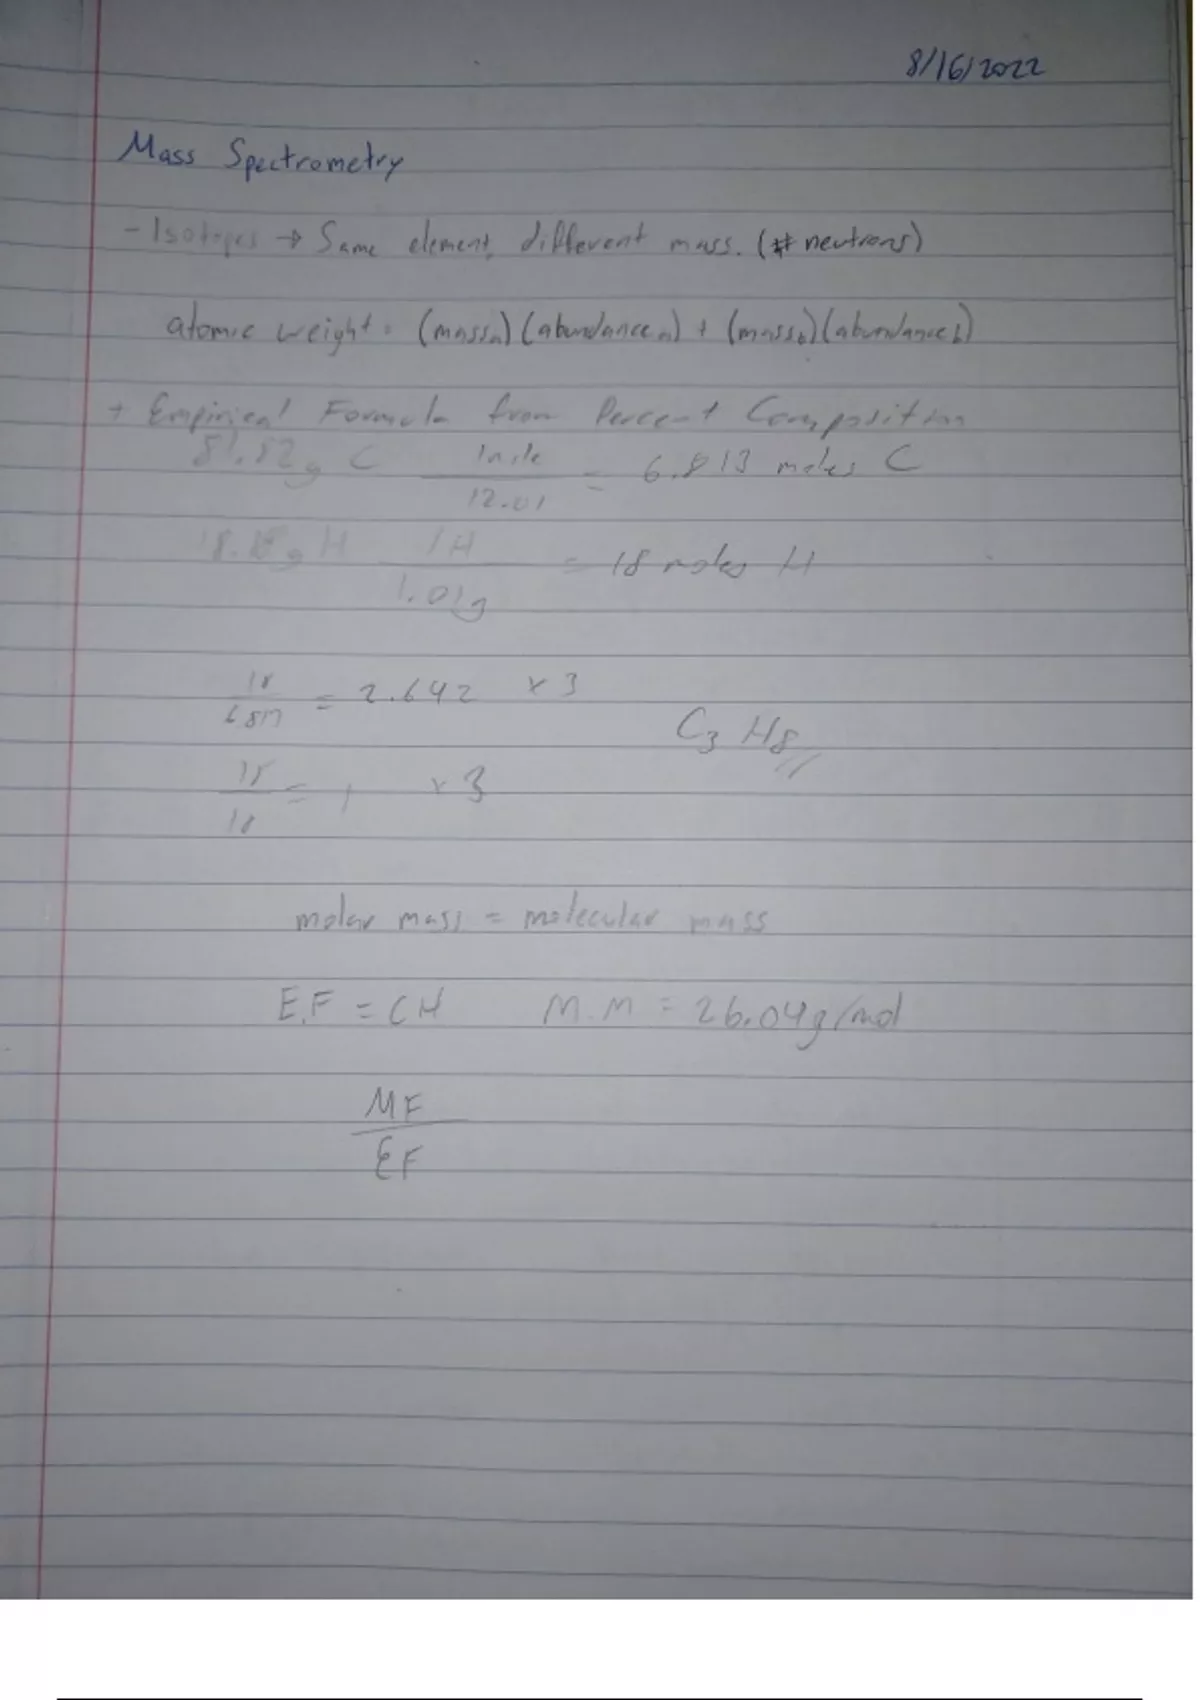 8/16/2022
Mass Spectrometry
- Isotopes → Same element, different mass. (# neutrons)
atomic weight = (mass a) (abundance a) + (mass b) (abundance b)
+ Empirical Formula from Percent Composition
81.82g C 1 mole / 12.01 = 6.813 moles C
g H 1 H / 1.01g = 18 moles H
18 / = 2.642 x 3
C3 H8
18 / 18 = 1 x 3
molar mass = molecular mass
E.F = CH M.M = 26.04g/mol
MF
EF